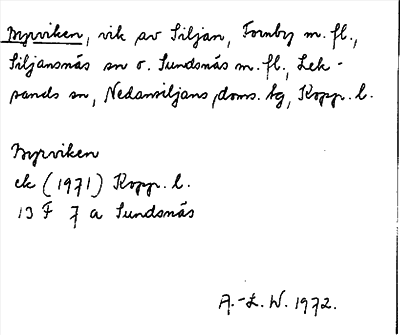 Byrviken, vik av Siljan, Fornby m. fl.,
Siljansnäs sn o. Sundsnäs m. fl., Lek-
sands sn, Nedansiljans doms. tg, Kopp. l.
Byrviken
ek (1971) Kopp. l.
13 F 7 a Sundsnäs
A.-L. W. 1972.